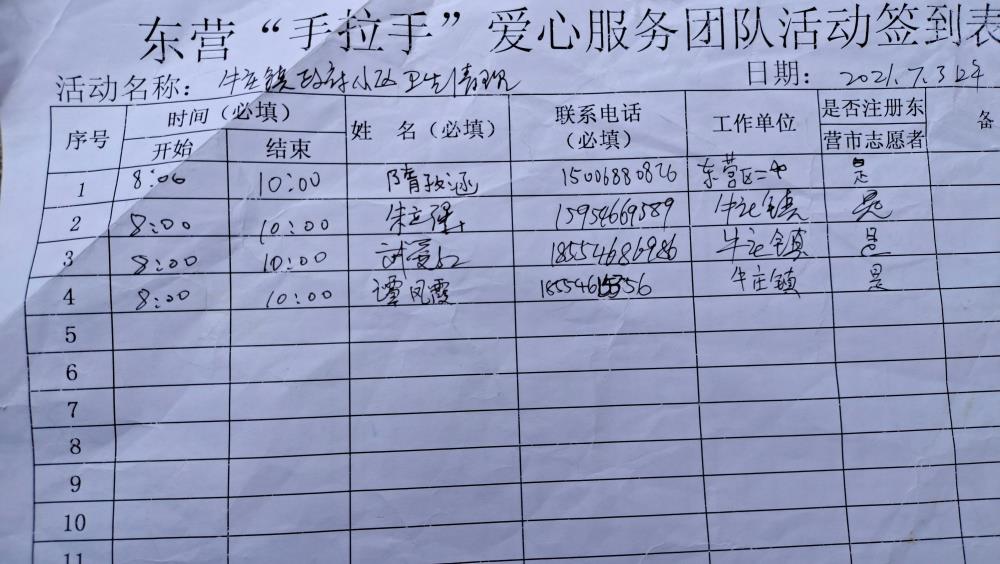 东营“手拉手”爱心服务团队活动签到表
活动名称： 牛庄镇政府小区卫生清理 日期： 2021.7.3
序号 时间（必填） 姓 名（必填） 联系电话（必填） 工作单位 是否注册东营市志愿者 备
开始 结束
1 8:00 10:00 隋 涵 15006880826 东营区二中 是
2 8:00 10:00 朱立强 15954669589 牛庄镇 是
3 8:00 10:00 18554686986 牛庄镇 是
4 8:00 10:00 谭凤霞 牛庄镇 是
5
6
7
8
9
10
11